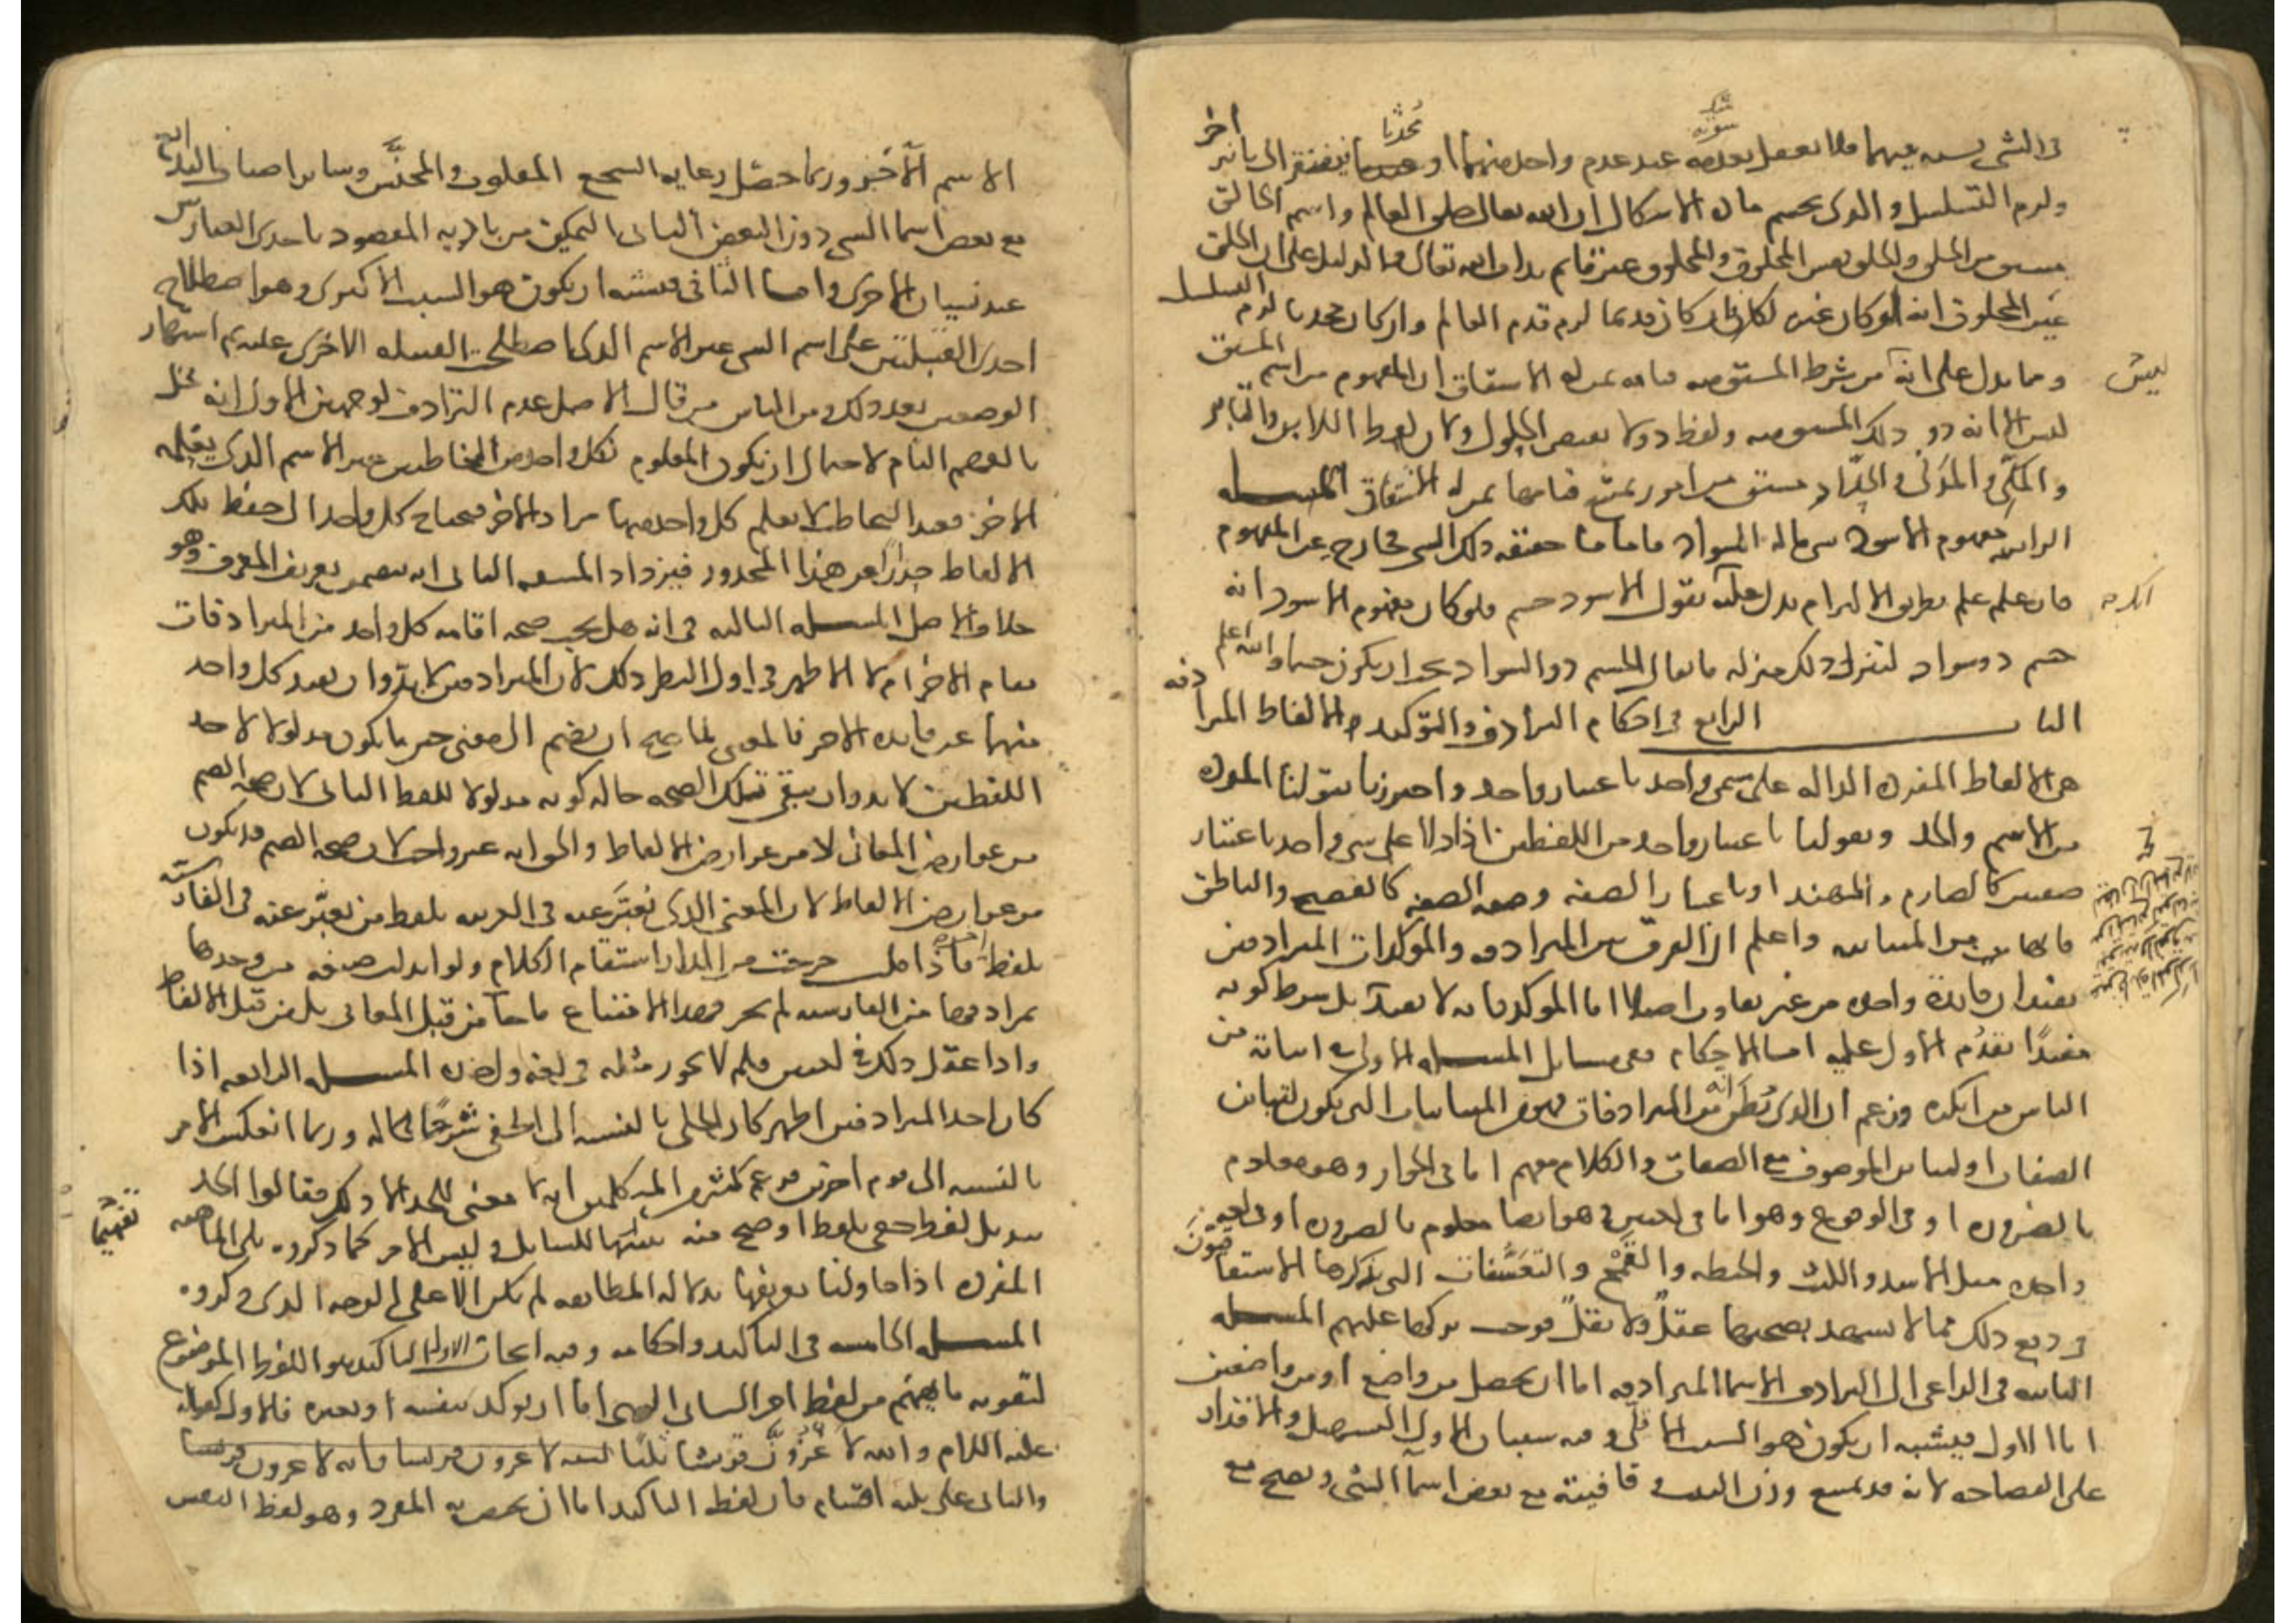 في الشي نسبه بينهما فلا يعقل ثبوته عند عدم واحد منهما او محدثا فيفتقر الى تاثير اخر
ولزم التسلسل والذي يحسم مادة الاشكال ان الله تعالى خلق العالم واسم الخالق
مشتق من الخلق والخلق نفس المخلوق والمخلوق غير قائم بذات الله تعالى والدليل على ان الخلق
عين المخلوق انه لو كان غيره لكان ان كان قديما لزم قدم العالم وان كان محدثا لزم التسلسل
ومما يدل على انه ليس من شرط المشتق منه قيامه بمن له الاشتقاق ان المفهوم من اسم المشتق
ليس الا انه ذو ذلك المشتق منه ولفظ ذو لا يقتضي الحلول ولان لفظ اللابن والتامر
والمكي والمدني والحداد مشتق من امور يمتنع قيامها بمن له الاشتقاق المسله
الرابعه مفهوم الاسود شي ما له السواد فاما ما حقيقه ذلك الشي فخارج عن المفهوم
فان علم علم بطريق الالتزام يدل عليه انك تقول الاسود جسم فلو كان مفهوم الاسود انه
جسم ذو سواد لتنزل ذلك منزله ما يقال الجسم ذو السواد يجب ان يكون جسما والله اعلم
الباب الرابع في احكام الترادف والتوكيد الالفاظ المترادفه
هي الالفاظ المفرده الداله على مسمى واحد باعتبار واحد واحترزنا بقولنا المفرده
عن الاسم والحد وبقولنا باعتبار واحد عن اللفظين اذا دلا على شي واحد باعتبار
صفتين كالصارم والمهند او باعتبار الصفه وصفه الصفه كالفصيح والناطق
فانهما من المتباينه واعلم ان الفرق بين المترادفه والموكدات المترادفين
يفيدان فايدة واحده من غير تفاوت اصلا اما الموكد فانه لا يفيد بل شرط كونه
مفيدًا تقدُم الاول عليه اما الاحكام ففي مسايل المسله الاولى في اثباته من
الناس من انكره وزعم ان الذي يُظن انه من المترادفات فهو من المتباينات التي تكون لتباين
الصفات او لتباين الموصوف مع الصفات والكلام معهم اما في الجواز وهو معلوم
بالضروره او في الوقوع وهو اما في لغتين وهو ايضا معلوم بالضروره او في لغه
واحده مثل الاسد والليث والحنطه والقمح والتعسُّفات التي يذكرها الاشتقاقيّونَ
في دفع ذلك مما لا يشهد بصحتها عقلٌ ولا نقلٌ فوجب تركها عليهم المسله
الثانيه في الداعي الى الترادف الاسما المترادفه اما ان تحصل من واضع او من واضعين
اما الاول فيشبه ان يكون هو السبب الاقلّي وفيه سببان الاول التسهيل والاقتدار
على الفصاحه لانه قد يمتنع وزن البيت وقافيته مع بعض اسما الشي ويصح مع
الاسم الآخر وربما حصل رعايه السجع المقلوب والمجنَّس وساير اصناف البديع
مع بعض اسما الشي دون البعض الثاني التمكين من تاديه المقصود باحدى العبارتين
عند نسيان الاخرى واما الثاني فيشبه ان يكون هو السبب الاكثري وهو اصطلاح
احدى القبيلتين على اسم الشي غير الاسم الذي اصطلحت القبيله الاخرى عليه ثم اشتهار
الوضعين بعد ذلك ومن الناس من قال الاصل عدم الترادف لوجهين الاول انه يخل
بالفهم التام لاحتمال ان يكون المعلوم لكل واحد من المخاطبين غير الاسم الذي يعلمه
الاخر فعند التخاطب لا يعلم كل واحد منهما مراد الاخر فيحتاج كل واحد الى حفظ تلك
الالفاظ حذرًا عن هذا المحذور فيزداد المشقه الثاني انه يتضمن تعريف المعرف وهو
خلاف الاصل المسله الثالثه في انه هل يجب صحه اقامه كل واحد من المترادفات
مقام الاخر ام لا الاظهر في اول النظر ذلك لان المترادفين لابد وان يفيد كل واحد
منهما عين فايده الاخر فالمعنى لما صح ان يضم الى معنى حين ما يكون مدلولا لاحد
اللفظين لا بد وان يبقى تلك الصحه حاله كونه مدلولا للفظ الثاني لان صحه الضم
من عوارض المعاني لا من عوارض الالفاظ والحق انه غير واجب لان صحه الضم قد يكون
من عوارض الالفاظ لان المعنى الذي يُعبَّر عنه في العربيه بلفظ من يُعبَّر عنه في الفارسيه
بلفظ اخر فاذا قلت خرجت من الدار استقام الكلام ولو ابدلت صيغه من وحدها
بمرادفها من الفارسيه لم يجز فهذا الامتناع ما جا من قبل المعاني بل من قبل الالفاظ
واذا عقل ذلك في لغتين فلم لا يجوز مثله في لغه واحده المسله الرابعه اذا
كان احد المترادفين اظهر كان الجلي بالنسبه الى الخفي شرحًا له وربما انعكس الامر
بالنسبه الى قوم اخرين وزعم كثير من المتكلمين انه لا معنى للحد الا ذلك فقالوا الحد
تبديل لفظ خفي بلفظ اوضح منه تفهيما للسايل وليس الامر كما ذكروه بل الماهيه
المفرده اذا حاولنا تعريفها بدلاله المطابقه لم يكن الا على الوجه الذي ذكروه
المسله الخامسه في التاكيد واحكامه وفيه ابحاث الاول التاكيد هو اللفظ الموضوع
لتقويه ما يفهم من لفظ اخر الثاني الشي اما ان يوكد بنفسه او بغيره فالاول كقوله
عليه السلام والله لاغزُوَنَّ قريشا ثلثًا
والثاني على ثلثه اقسام فان لفظه التاكيد اما ان يختص به المفرد وهو لفظ النفس